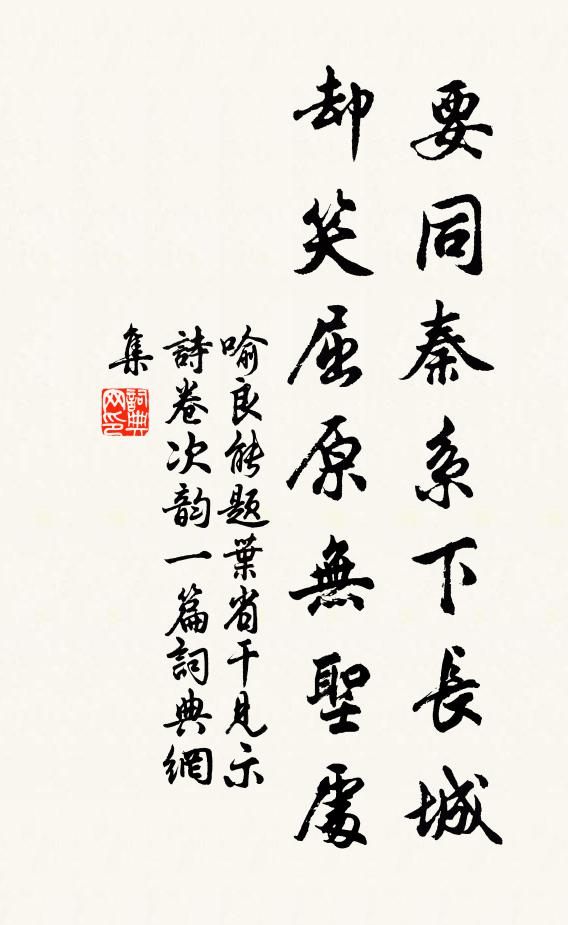 要同秦系下長城
却笑屈原無聖處
喻良能題葉省干見示
詩卷次韵一篇詞典網
集
詞典网印